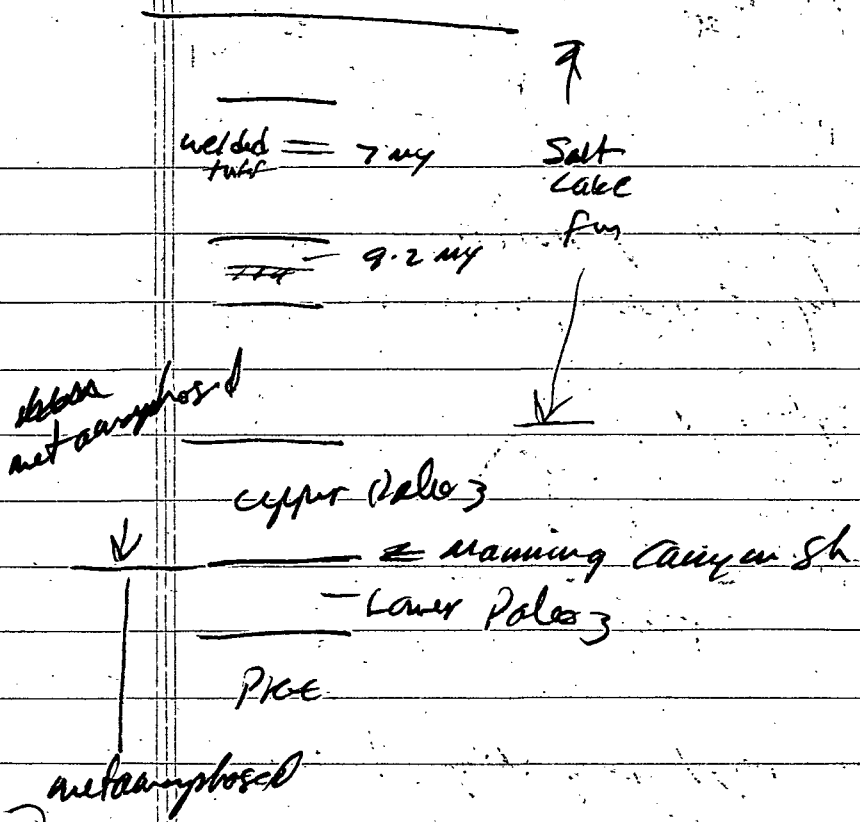 welded
tuff
7 my
Salt
Lake
fm
9.2 my
metamorphosed
upper Paleoz
Manning Canyon Sh
Lower Paleoz
PK€
metamorphosed